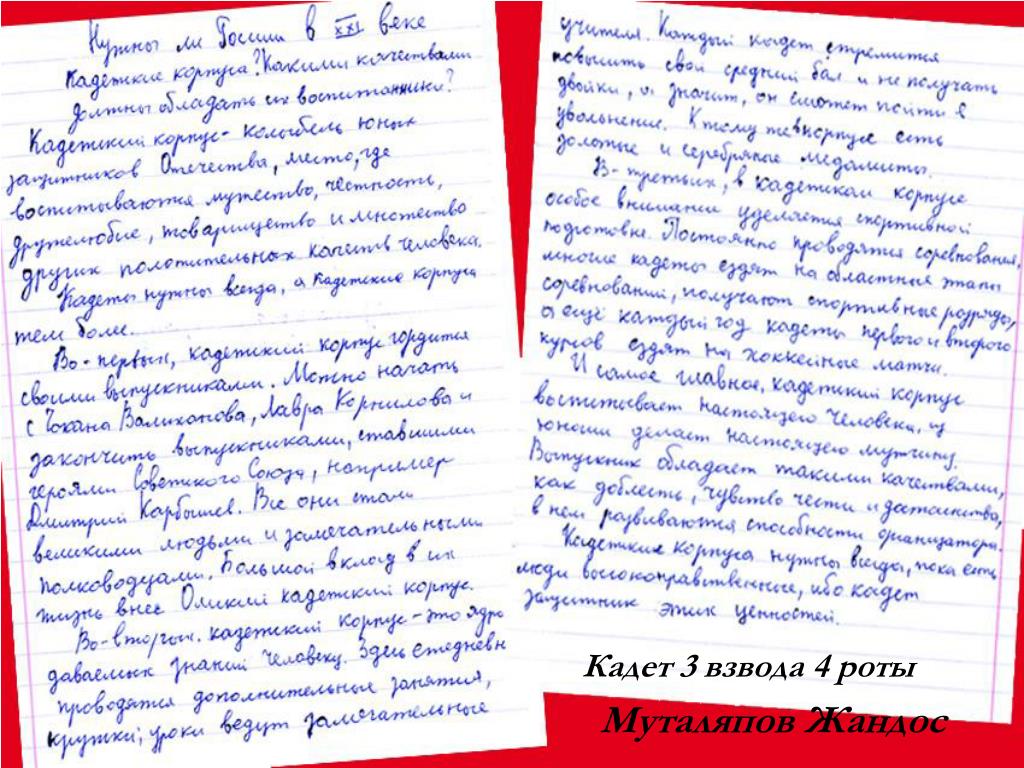 Нужны ли России в XXI веке
кадетские корпуса? Какими качествами
должны обладать их воспитанники?
Кадетский корпус - колыбель юных
защитников Отечества, место, где
воспитываются мужество, честность,
дружелюбие, товарищество и множество
других положительных качеств человека.
Кадеты нужны всегда, а кадетские корпуса
тем более.
Во-первых, кадетский корпус гордится
своими выпускниками. Можно начать
с Чокана Валиханова, Лавра Корнилова и
закончить выпускниками, ставшими
героями Советского Союза, например
Дмитрий Карбышев. Все они стали
великими людьми и замечательными
полководцами. Большой вклад в их
жизнь внёс Омский кадетский корпус.
Во-вторых. кадетский корпус - это ядро
даваемых знаний человеку. Здесь ежедневн
проводятся дополнительные занятия,
кружки, уроки ведут замечательные
учителя. Каждый кадет стремится
повысить свой средний бал и не получать
двойки, а значит, он сможет пойти в
увольнение. К тому же в корпусе есть
золотые и серебряные медалисты.
В-третьих, в кадетском корпусе
особое внимание уделяется спортивной
подготовке. Постоянно проводятся соревнования,
многие кадеты ездят на областные этапы
соревнований, получают спортивные разряды,
а ещё каждый год кадеты первого и второго
курсов ездят на хоккейные матчи.
И самое главное, кадетский корпус
воспитывает настоящего человека, из
юноши делает настоящего мужчину.
Выпускник обладает такими качествами,
как доблесть, чувство чести и достоинства,
в нем развиваются способности организатора.
Кадетские корпуса нужны всегда, пока есть
люди высоконравственные, ибо кадет
защитник этих ценностей.
Кадет 3 взвода 4 роты
Муталяпов Жандос